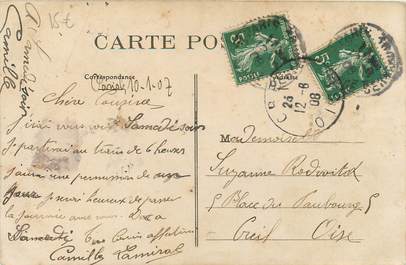 15€
A Samedi soir
Camille
CARTE POS
Correspondance
Paris 10-1-07
Chère Cousine
J'irai vous voir Samedi soir
je partirai au train de 6 heures
j'aurai une permission de
je serai heureux de passer
la journée avec vous. Donc a
Samedi Ton Cousin affectueux
Camille Lamiral
23
12-8
08
5
5
Mademoiselle
Suzanne Redovitch
5 Place du Faubourg 5
Creil Oise